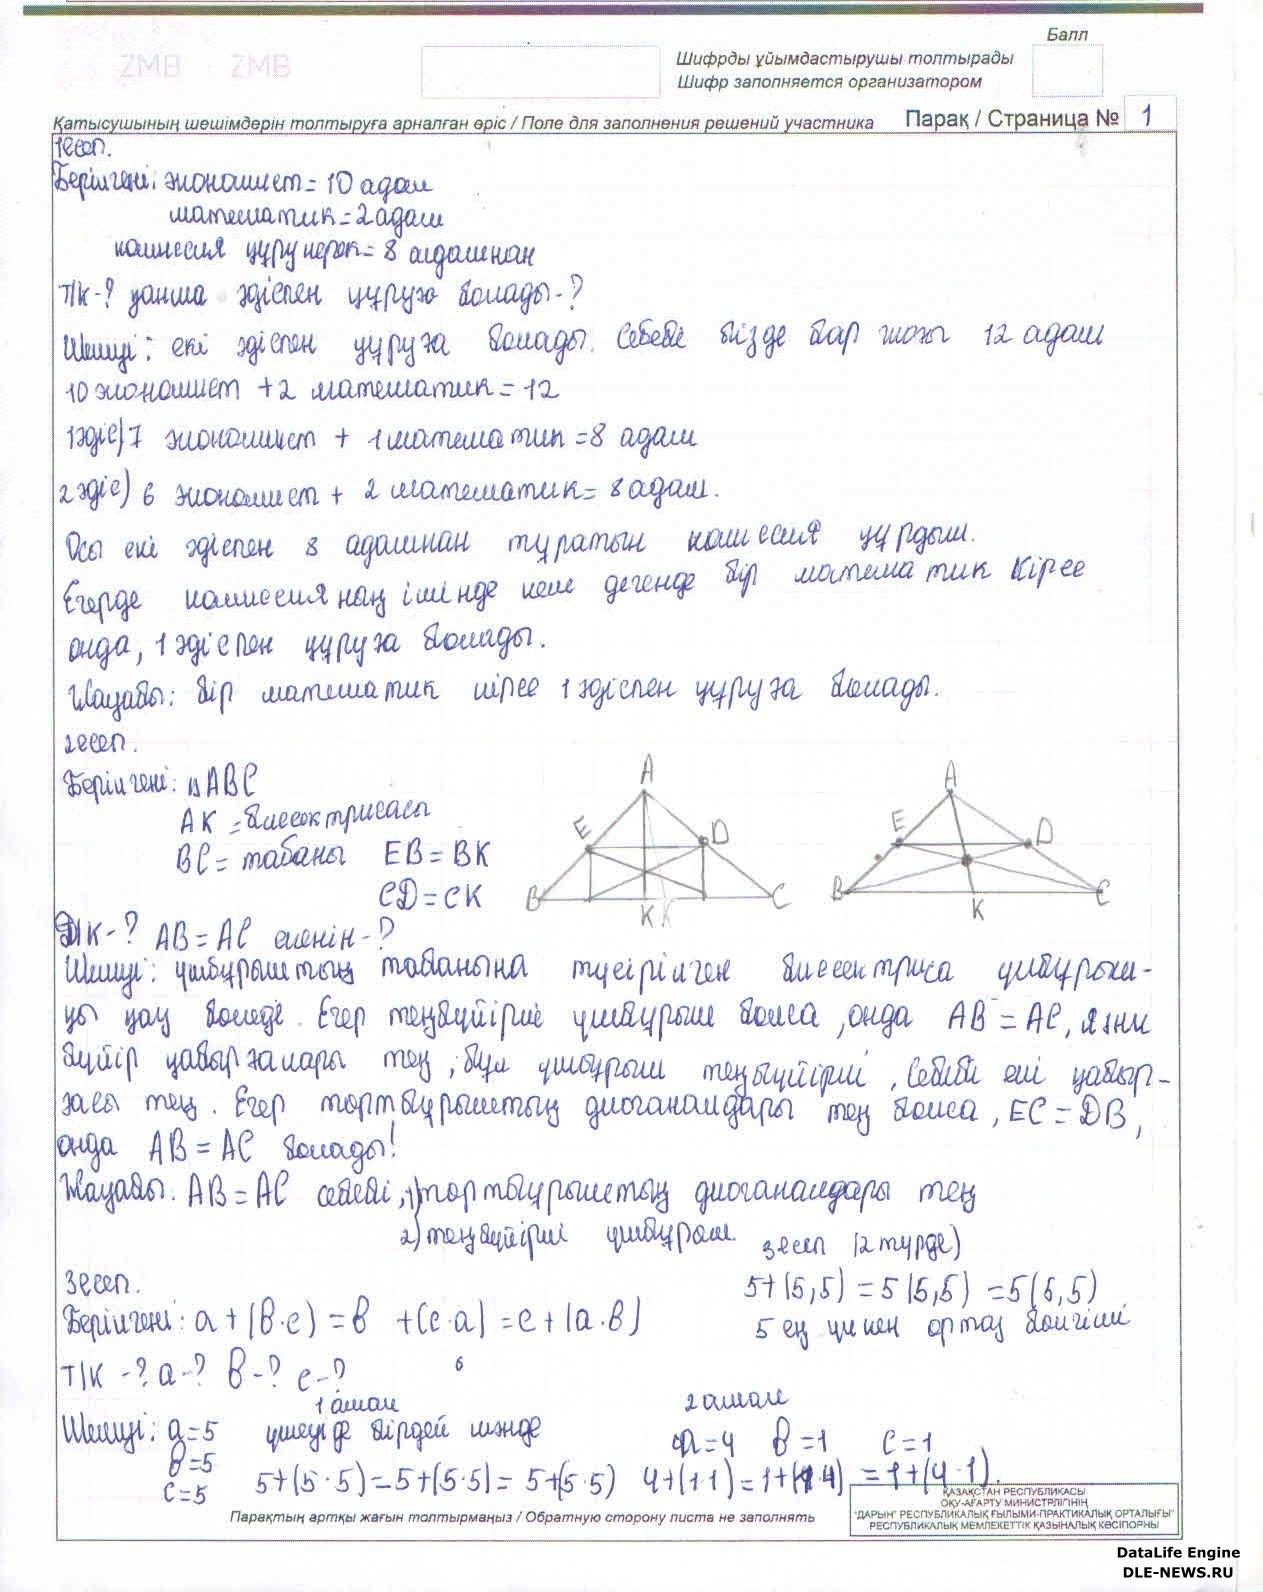 ZMB ZMB
Балл
Шифрды ұйымдастырушы толтырады
Шифр заполняется организатором
Қатысушының шешімдерін толтыруға арналған өріс / Поле для заполнения решений участника Парақ / Страница № 1
1есеп.
Берілгені: экономист = 10 адам
математик = 2 адам
комиссия құру керек = 8 адамнан
Т/К-? қанша әдіспен құруға болады-?
Шешуі: екі әдіспен құруға болады. Себебі бізде бар жоғы 12 адам
10 экономист + 2 математик = 12
1әдіс) 7 экономист + 1 математик = 8 адам
2 әдіс) 6 экономист + 2 математик = 8 адам.
Осы екі әдіспен 8 адамнан тұратын комиссия құрдым.
Егерде комиссияның ішінде кем дегенде бір математик кірсе
онда, 1 әдіспен құруға болады.
Жауабы: бір математик кірсе 1 әдіспен құруға болады.
2есеп.
Берілгені: △ABC
AK = биссектрисасы
BC = табаны EB = BK
CD = CK
A E D B K K C
A E D B K C
Т/К-? AB = AC екенін-?
Шешуі: үшбұрыштың табанына түсірілген биссектриса үшбұрыш-
ты қақ бөледі. Егер теңбүйірлі үшбұрыш болса, онда AB = AC, яғни
бүйір қабырғалары тең, бұл үшбұрыш теңбүйірлі, себебі екі қабыр-
ғасы тең. Егер төртбұрыштың диоганалдары тең болса, EC = DB,
онда AB = AC болады!
Жауабы. AB = AC себебі, 1) төртбұрыштың диоганалдары тең
2) теңбүйірлі үшбұрыш.
3есеп (2 түрде)
5+(5,5) = 5(5,5) = 5(5,5)
5 ең үлкен ортақ бөлгіші
3есеп.
Берілгені: a + (b·c) = b + (c·a) = c + (a·b)
Т/К -? a-? b-? c-?
6
1 амал
Шешуі: a=5 үшеуіде бірдей мәнде
b=5
c=5 5+(5·5) = 5+(5·5) = 5+(5·5)
2 амал
a=4 b=1 c=1
4+(1·1) = 1+(1·4) = 1+(4·1).
Парақтың артқы жағын толтырмаңыз / Обратную сторону листа не заполнять
ҚАЗАҚСТАН РЕСПУБЛИКАСЫ
ОҚУ-АҒАРТУ МИНИСТРЛІГІНІҢ
"ДАРЫН" РЕСПУБЛИКАЛЫҚ ҒЫЛЫМИ-ПРАКТИКАЛЫҚ ОРТАЛЫҒЫ"
РЕСПУБЛИКАЛЫҚ МЕМЛЕКЕТТІК ҚАЗЫНАЛЫҚ КӘСІПОРНЫ
DataLife Engine
DLE-NEWS.RU